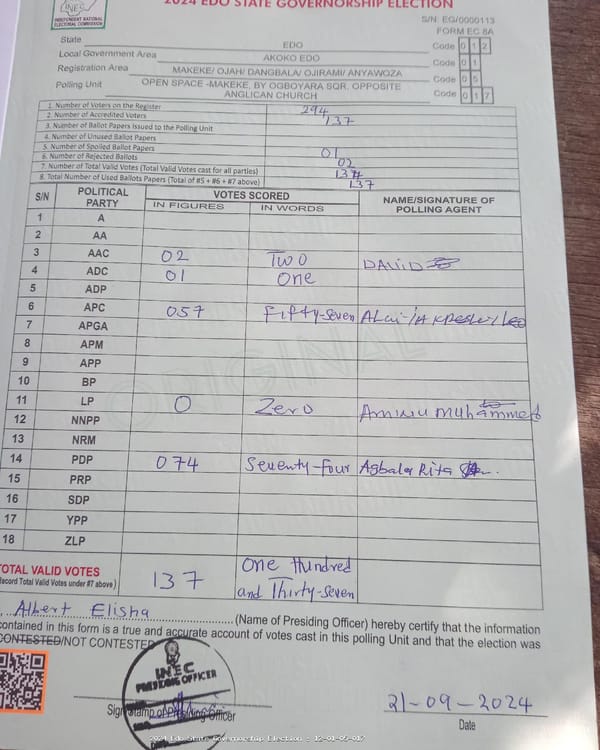 2024 EDO STATE GOVERNORSHIP ELECTION
INEC
INDEPENDENT NATIONAL ELECTORAL COMMISSION
S/N: EG/0000113
FORM EC 8A
State EDO Code 0 1 2
Local Government Area AKOKO EDO Code 0 1
Registration Area MAKEKE/ OJAH/ DANGBALA/ OJIRAMI/ ANYAWOZA Code 0 5
Polling Unit OPEN SPACE -MAKEKE, BY OGBOYARA SQR. OPPOSITE ANGLICAN CHURCH Code 0 1 7
1. Number of Voters on the Register 294
2. Number of Accredited Voters 137
3. Number of Ballot Papers Issued to the Polling Unit
4. Number of Unused Ballot Papers
5. Number of Spoiled Ballot Papers 01
6. Number of Rejected Ballots 02
7. Number of Total Valid Votes (Total Valid Votes cast for all parties)
8. Total Number of Used Ballots Papers (Total of #5 + #6 + #7 above) 137
S/N POLITICAL PARTY VOTES SCORED NAME/SIGNATURE OF POLLING AGENT
IN FIGURES IN WORDS
1 A
2 AA
3 AAC 02 Two DAVID
4 ADC 01 One
5 ADP
6 APC 057 Fifty-seven
7 APGA
8 APM
9 APP
10 BP
11 LP 0 Zero Aminu muhammed
12 NNPP
13 NRM
14 PDP 074 Seventy-four Agbala Rita
15 PRP
16 SDP
17 YPP
18 ZLP
TOTAL VALID VOTES 137 One Hundred
(Record Total Valid Votes under #7 above) and Thirty-seven
Albert Elisha (Name of Presiding Officer) hereby certify that the information
contained in this form is a true and accurate account of votes cast in this polling Unit and that the election was
CONTESTED/NOT CONTESTED
INEC
PRESIDING OFFICER
Sign/Stamp of Presiding Officer
21-09-2024
Date
2024 Edo State Governorship Election - 12-01-05-017
ORIGINAL